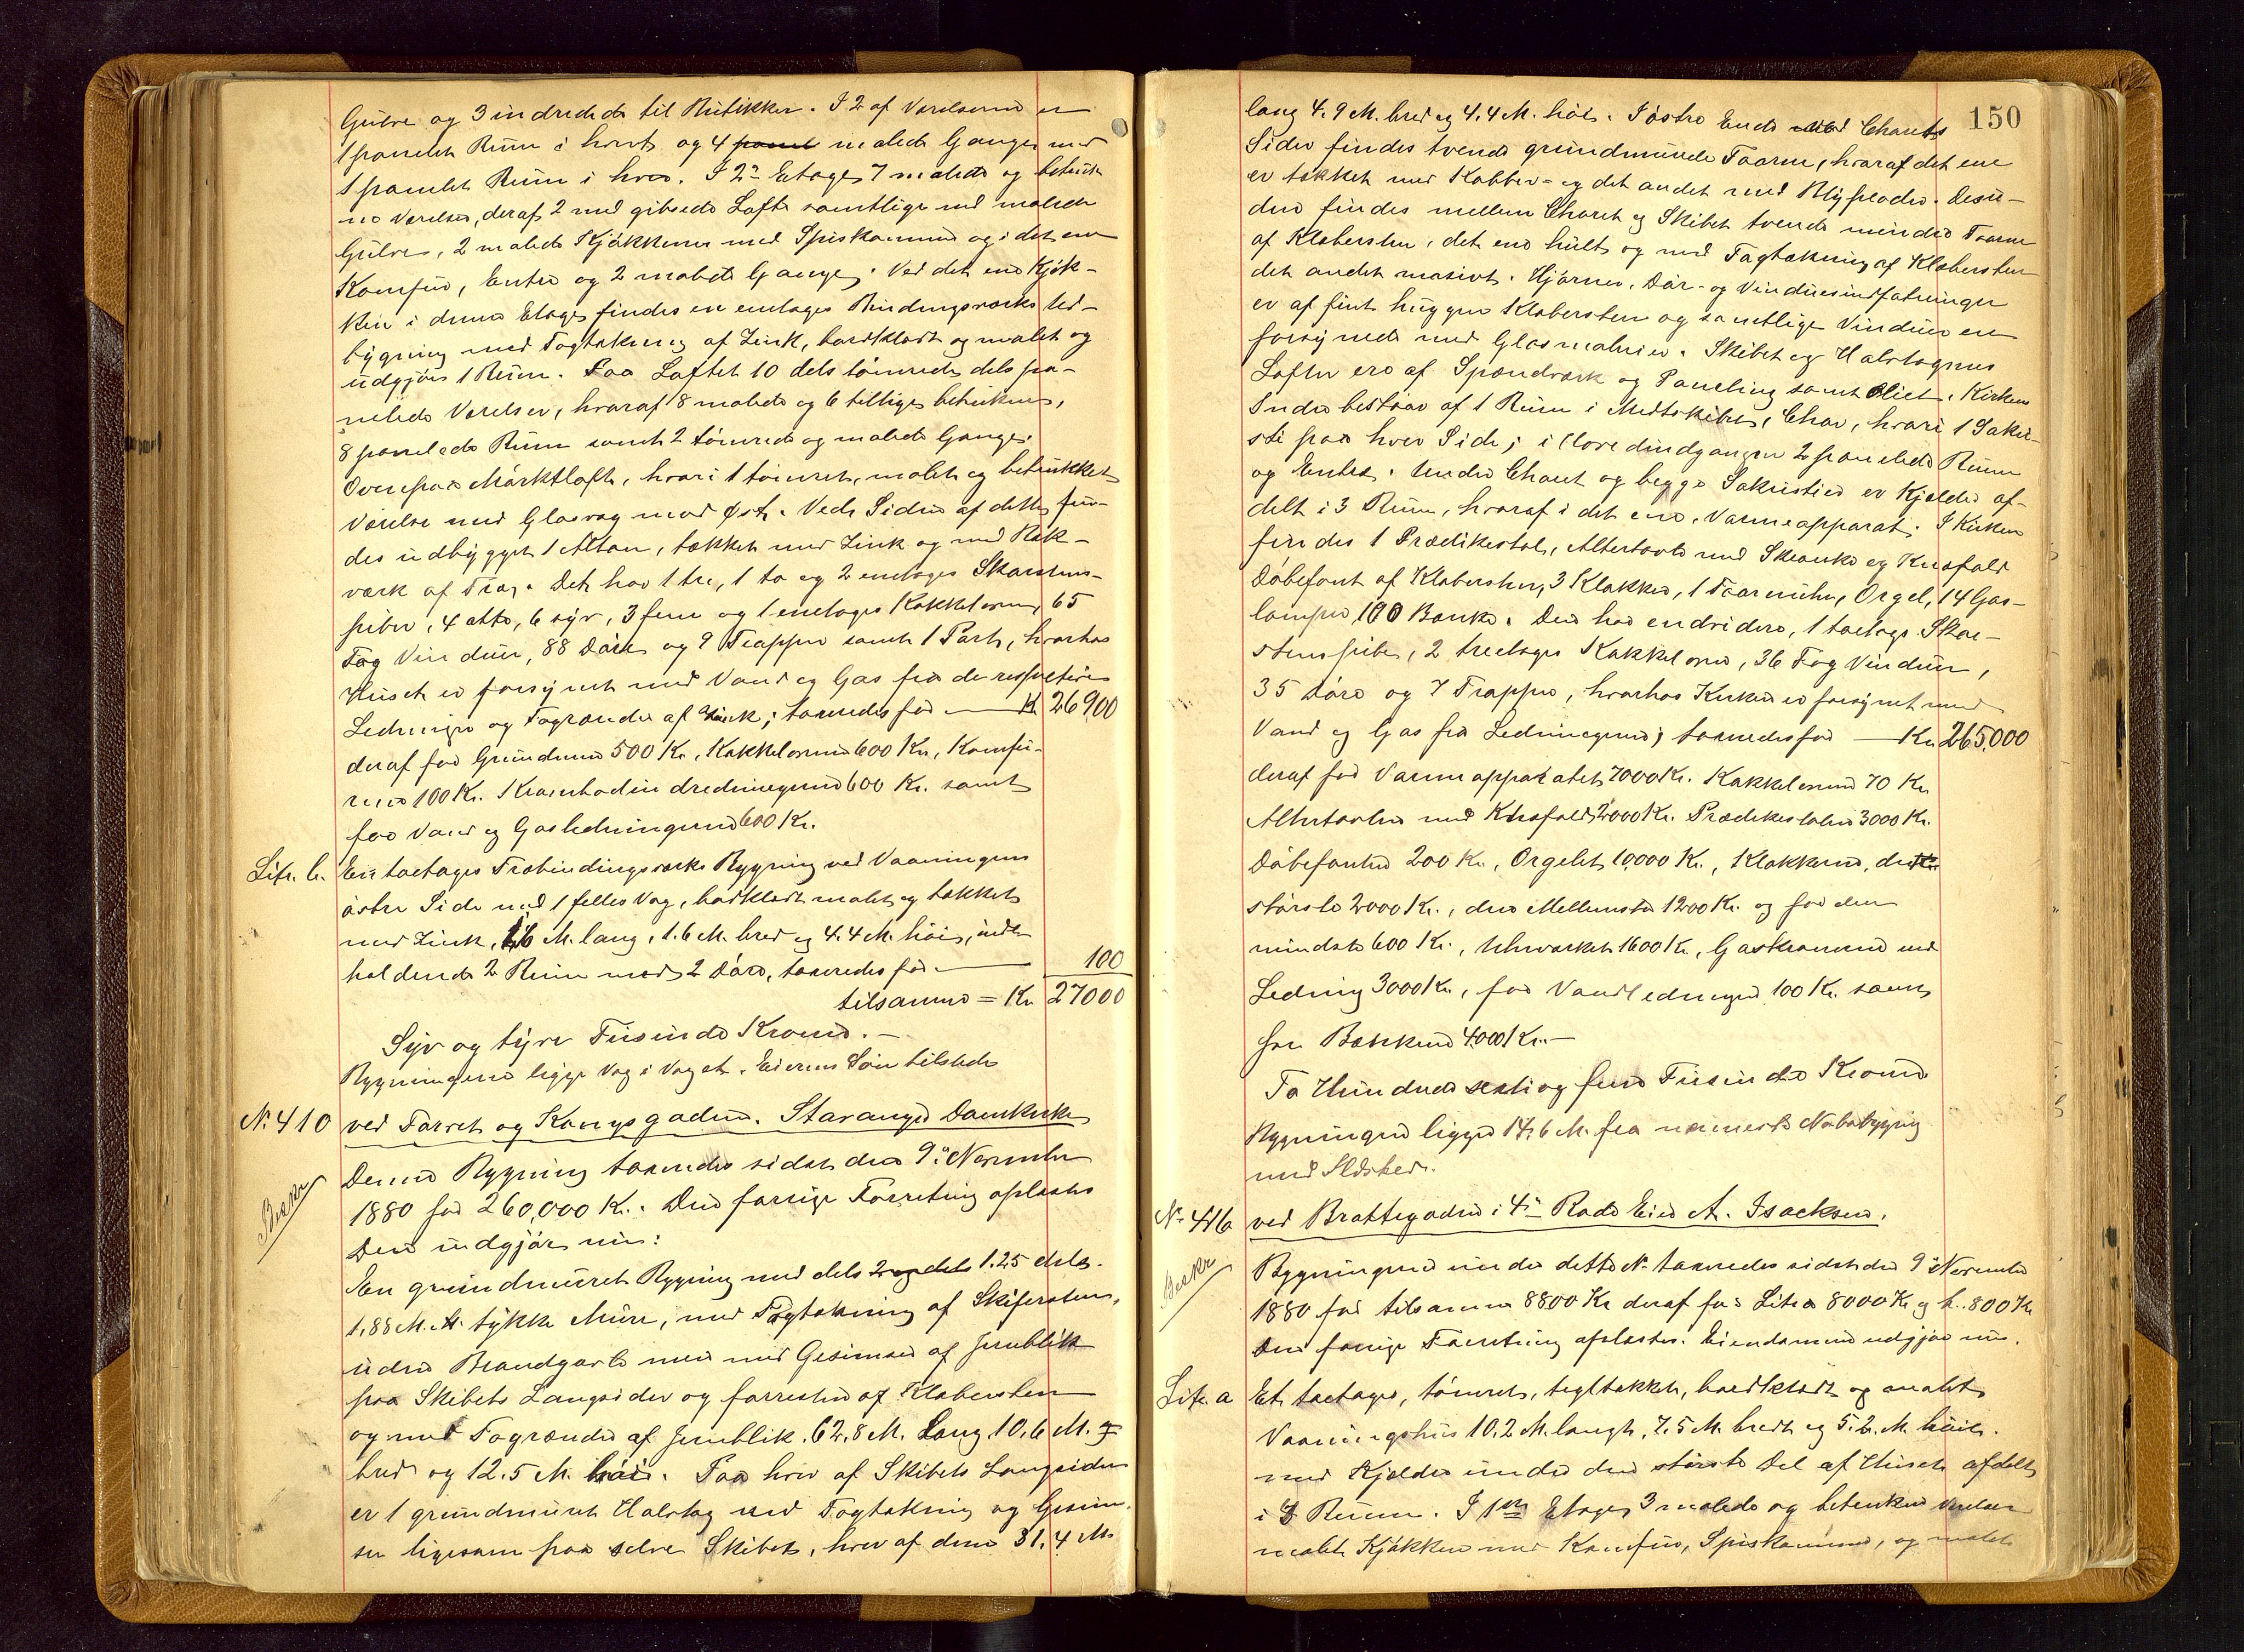 Gulve og 3 indredede til Butikker. I 2 af Værelserne er
1 panelet Rum i hvert og 4 panel malede Gange med
1 panelet Rum i hver. I 2den Etage, 7 malede og betruk-
ne Værelser, deraf 2 med gibsede Lofte samtlige med malede
Gulve, 2 malede Kjøkkener med Spiskammer og i det ene
Komfur, Entre og 2 malede Gange. Ved det ene Kjøk-
ken i denne Etage findes en enetages Bindingsværks til-
bygning med Tagtækning af Zink, bordklædt og malet og
udgjør 1 Rum. Paa Loftet 10 dels tømrede, dels pa-
nelede Værelser, hvoraf 8 malede og 6 tillige betrukne,
8 panelede Rum samt 2 tømrede og malede Gange.
Ovenpaa Mørktloft, hvori 1 tømret, malet og betrukket
Værelse med Glasvæg mod Øst. Ved Siden af dette fin-
des udbygget 1 Altan, tækket med Zink og med Ræk-
værk af Træ. Det har 1 tre, 1 to og 2 enetages Skorstens-
piber, 4 otte, 6 syv, 3 fem og 1 enetages Kakkelovne, 65
Fag Vinduer, 88 Døre og 9 Trapper samt 1 Port, hvorhos
Huset er forsynet med Vand og Gas fra de respektive
Ledninger og Tagrender af Zink; taxeredes for — Kr 26900
deraf for Grunden 500 Kr, Kakkelovnene 600 Kr, Komfu-
rene 100 Kr. Krambodindredningerne 600 Kr. samt
for Vand og Gasledningerne 600 Kr.
Litr. b. En toetages Træbindingsværks Bygning ved Vaaningens
østre Side med 1 fælles Væg, bordklædt malet og tækket
med Zink, 1.6 M. lang, 1.6 M. bred og 4.4 M. høi, inde-
holdende 2 Rum med 2 Døre, taxeredes for — 100
tilsammen = Kr 27000
Syv og tyve Tusinde Kroner. —
Bygningerne ligge Væg i Væg et. Eierens Søn tilstede
No 410 ved Torvet og Kongsgaden. Stavanger Domkirke
Beskr
Denne Bygning taxeredes sidst den 9de November
1880 for 260,000 Kr. Den forrige Forretning oplæstes
Den udgjør nu:
En grundmuret Bygning med dels 2 og dels 1.25 dels
1,88 M. M. tykke Mure, med Tagtækning af Skifersten,
uden Brandgavle men med Gesimser af Jernblik
paa Skibets Langsider og forresten af Klæbersten
og med Tagrender af Jernblik. 62,8 M. Lang 10,6 M.
bred og 12.5 M. høi. Paa hver af Skibets Langsider
er 1 grundmuret Halvtag med Tagtækning og Gesim-
ser ligesom paa selve Skibet, hver af dem 31,4 M.
150
lang 4.9 M. bred og 4.4 M. høi. I østre Ende ved Chorets
Sider findes tvende grundmurede Taarne, hvoraf det ene
er tækket med Kobber- og det andet med Blyplader. Desu-
den findes mellem Choret og Skibet tvende mindre Taarne
af Klæbersten, det ene hult og med Tagtækning af Klæbersten
det andet massivt. Hjørner, Dør- og Vinduesindfatninger
er af fint huggen Klæbersten og samtlige Vinduer ere
forsynede med Glasmalerier. Skibet og Halvtagenes
Lofter ere af Spændværk og Paneling samt Oliet. Kirkens
Indre bestaar af 1 Rum i Midtskibet, Chor, hvori 1 Sakri-
sti paa hver Side; i Hovedindgangen 2 panelede Rum
og Entre. Under Choret og begge Sakristier er Kjelder af-
delt i 3 Rum, hvoraf i det ene, Varmeapparat. I Kirken
findes 1 Prædikestol, Altertavle med Skranke og Knæfald
Døbefont af Klæbersten, 3 Klokker, 1 Taarnuhr, Orgel, 14 Gas-
lamper, 100 Bænke. Den har endvidere, 1 toetages Skor-
stenspibe, 2 treetages Kakkelovne, 36 Fag Vinduer,
35 Døre og 7 Trapper, hvorhos Kirken er forsynet med
Vand og Gas fra Ledningerne; taxeredes for — Kr 265,000
deraf for Varmeapparatet 7000 Kr. Kakkelovnene 70 Kr.
Altertavlen med Knæfald 2000 Kr. Prædikestolen 3000 Kr.
Døbefonten 200 Kr., Orgelet 10,000 Kr., Klokkerne, den
største 2000 Kr., den Mellemste 1200 Kr. og for den
mindste 600 Kr., Uhrværket 1600 Kr, Gaskronerne med
Ledning 3000 Kr., for Vandledningen 100 Kr. samt
for Bænkene 4000 Kr. —
To Hundrede sexti og fem Tusinde Kroner
Bygningen ligger 14,6 M. fra nærmeste Nabobygning
med Ildsted.
No 416 ved Brattegaden i 4de Rode Eier A. Isacksen.
Beskr
Bygningerne under dette No taxeredes sidst den 9de November
1880 for tilsammen 8800 Kr deraf for Litr a 8000 Kr og b. 800 Kr
Den forrige Forretning oplæstes. Eiendommen udgjør nu.
Litr. a Et toetages, tømret, tegltækket, bordklædt og malet
Vaaningshus 10.2 M. langt, 7.5 M. bredt og 5.2. M. høit.
med Kjelder under den største Del af Huset afdelt
i 3 Rum. I 1ste Etage, 3 malede og betrukne Værelser
malet Kjøkken med Komfur, Spiskammer, og malet